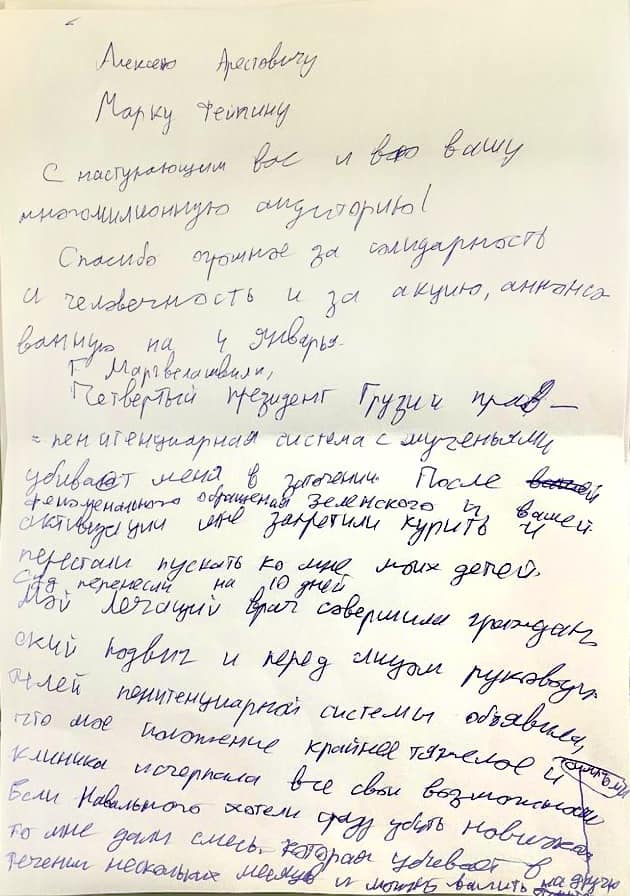 Алексею Арестовичу
Марку Фейгину
С наступающим вас и всю вашу
многомилионную аудиторию!
Спасибо огромное за солидарность
и человечность и за акцию, анонсо
ванную на 4 январья.
Г Маргвелашвили,
Четвертый президент Грузии прав –
= пенитенциарная система с мученьями
убивает меня в заточении. После вашей
феноменального обращения Зеленского и вашей
активизации мне запретили курить и
перестали пускать ко мне моих детей.
Суд перенесли на 10 дней
Мой лечащий врач совершила граждан
ский подвиг и перед лицом руководи
телей пенитенциарной системы объявила,
что мое положение крайнее тяжелое и
клиника исчерпала все свои возможности
Если Навального хотели сразу убить
то мне дали смесь, которая убивает в
течении нескольких месяцев и можно свалить на други